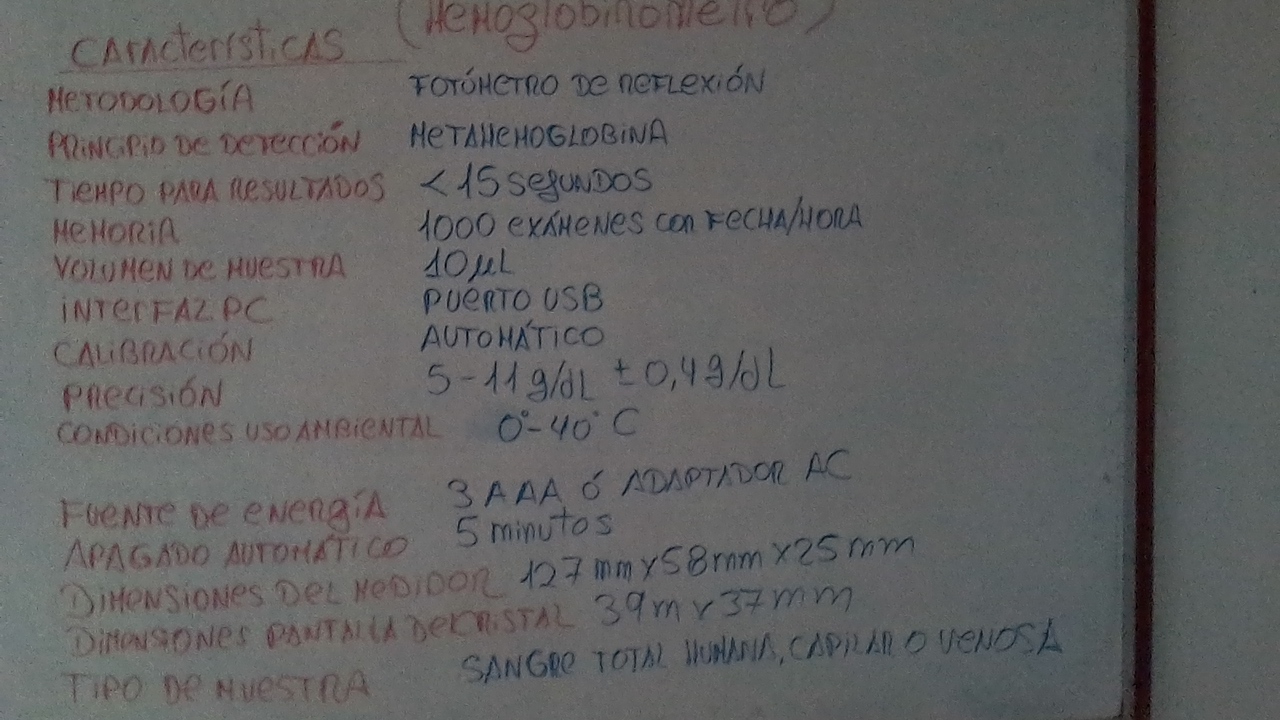 (Hemoglobinometro)
CARACTERÍSTICAS
METODOLOGÍA FOTÓMETRO DE REFLEXIÓN
PRINCIPIO DE DETECCIÓN METAHEMOGLOBINA
TIEMPO PARA RESULTADOS < 15 SEGUNDOS
MEMORIA 1000 EXÁMENES CON FECHA/HORA
VOLUMEN DE MUESTRA 10 µL
INTERFAZ PC PUERTO USB
CALIBRACIÓN AUTOMÁTICO
PRECISIÓN 5-11 g/dL ± 0,4 g/dL
CONDICIONES USO AMBIENTAL 0°-40° C
FUENTE DE ENERGÍA 3 AAA Ó ADAPTADOR AC
APAGADO AUTOMÁTICO 5 minutos
DIMENSIONES DEL MEDIDOR 127 mm x 58 mm x 25 mm
DIMENSIONES PANTALLA DE CRISTAL 39 m x 37 mm
TIPO DE MUESTRA SANGRE TOTAL HUMANA, CAPILAR O VENOSA